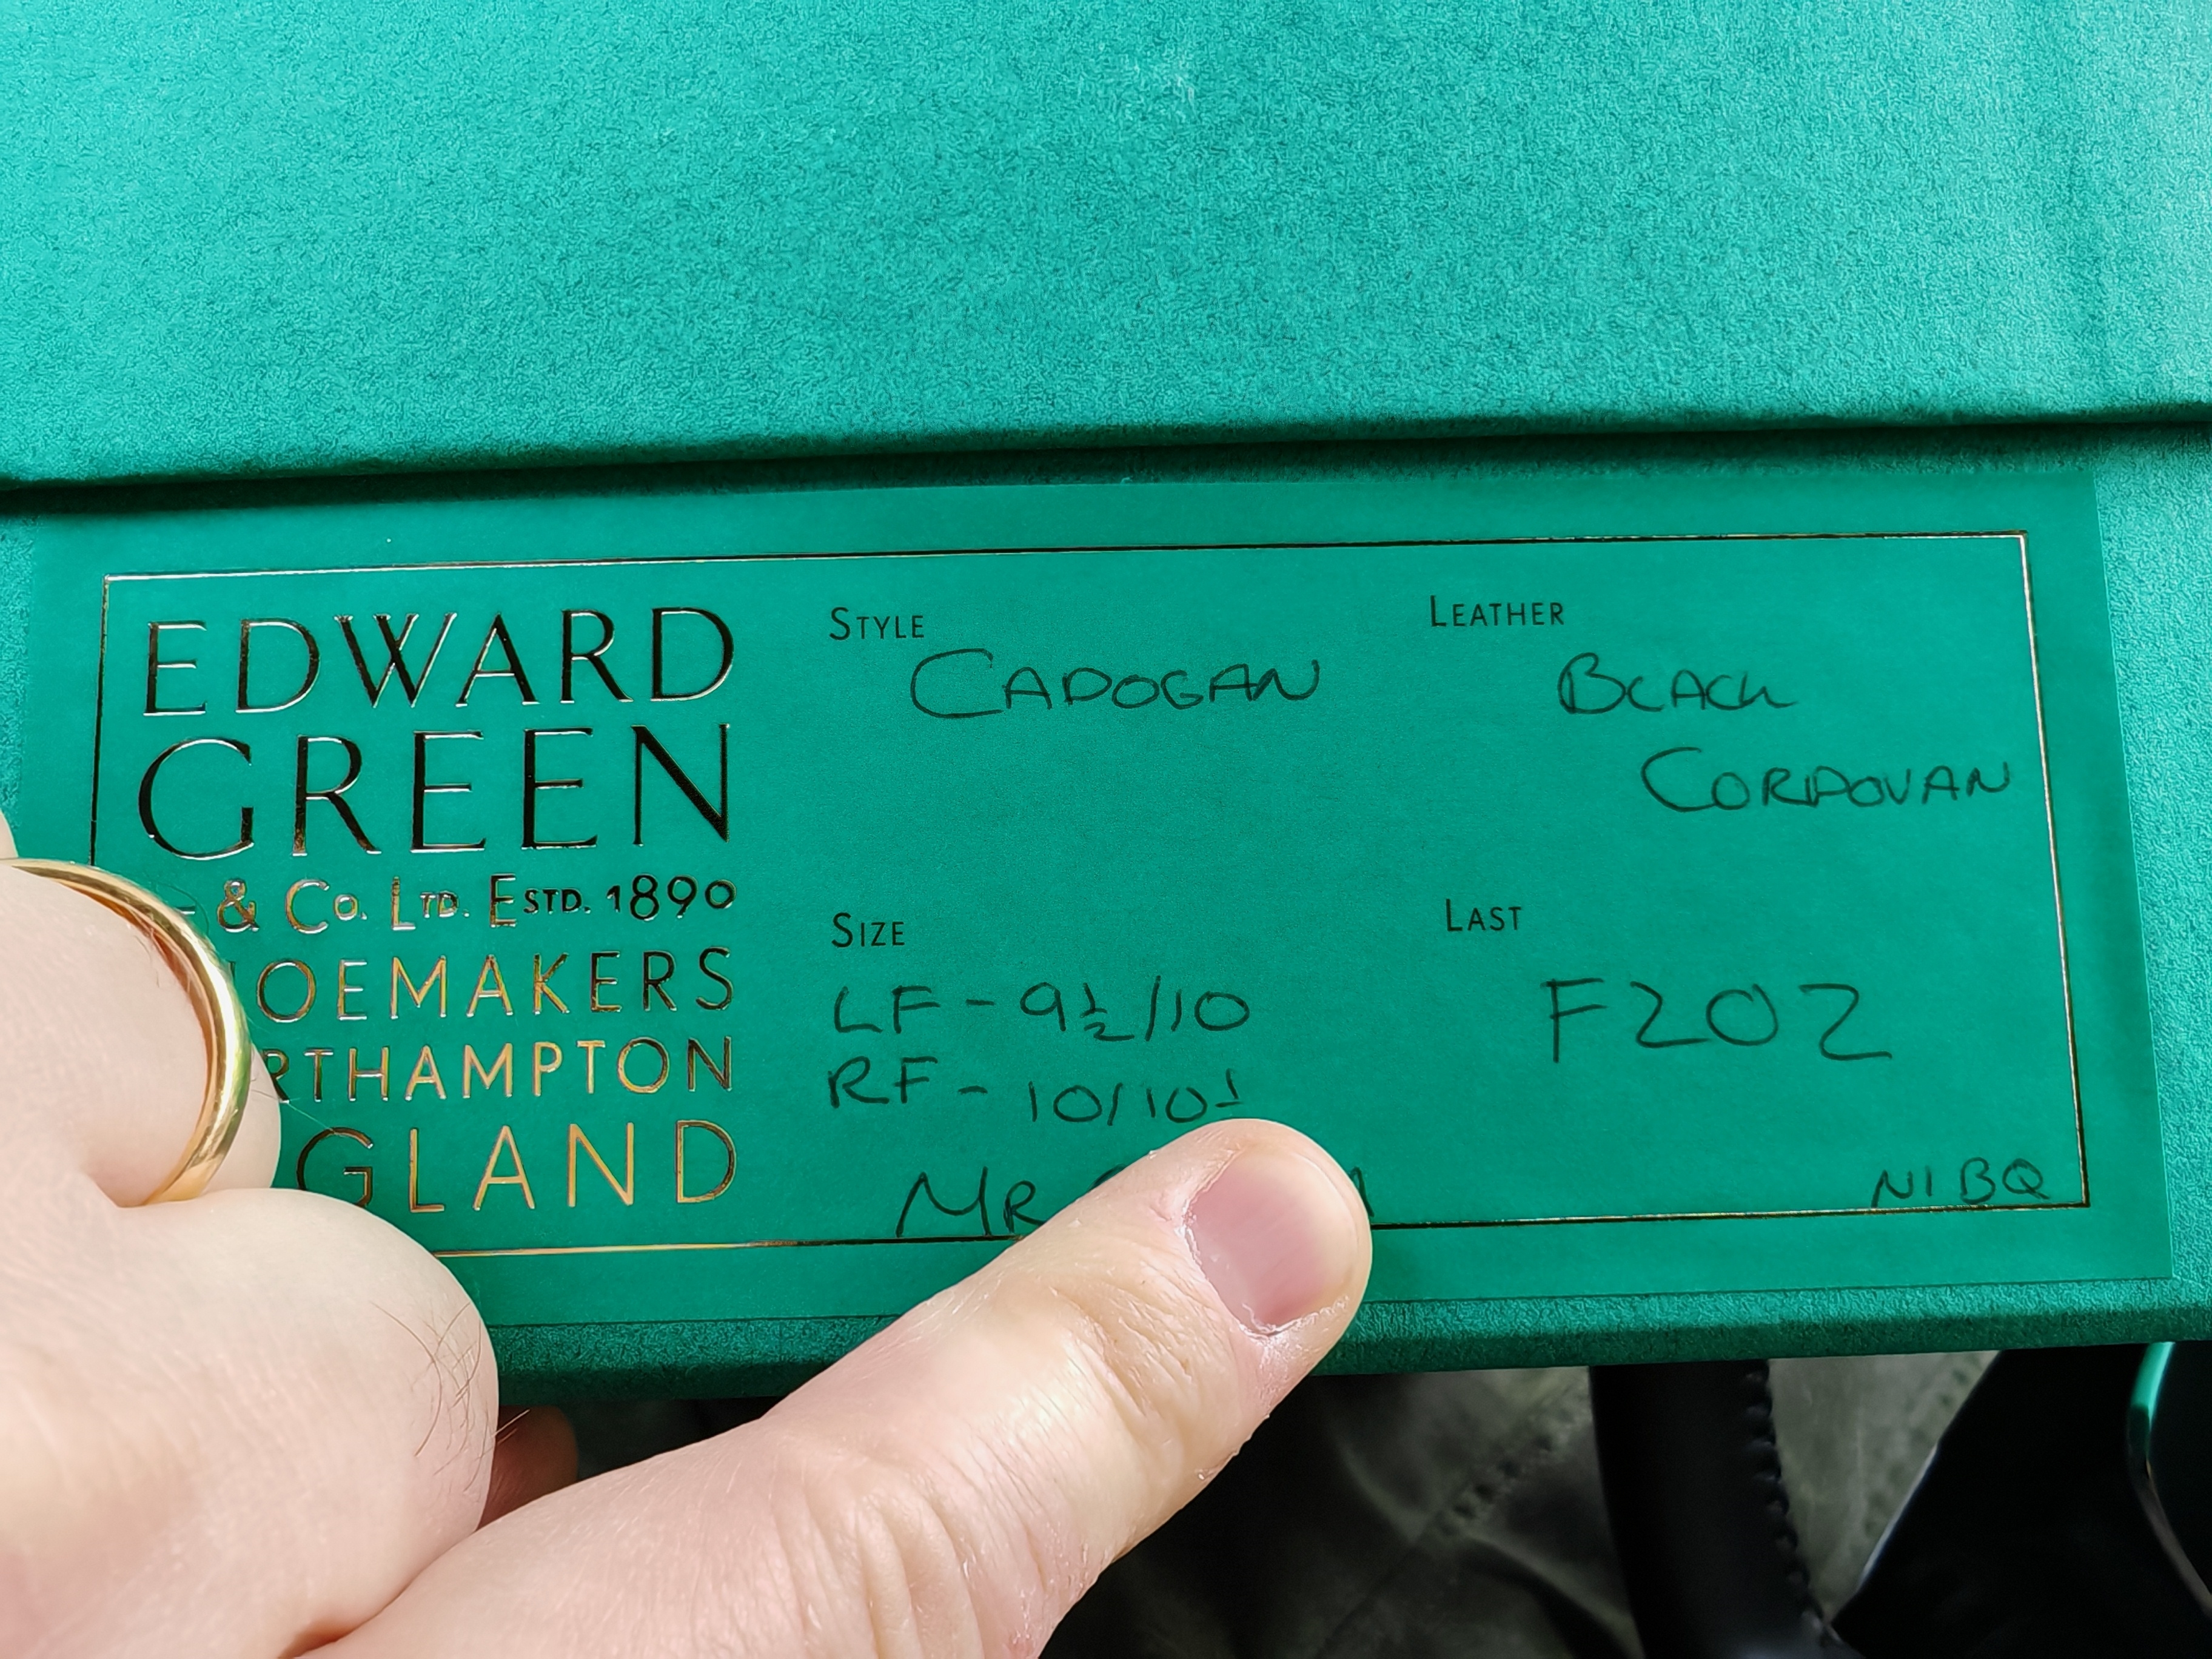 EDWARD
GREEN
& Co. LTD. ESTD. 1890
GLAND
STYLE
CADOGAN
LEATHER
BLACK
CORDOVAN
SIZE
LF - 9½/10
RF - 10/10
MR
LAST
F202
N1BQ